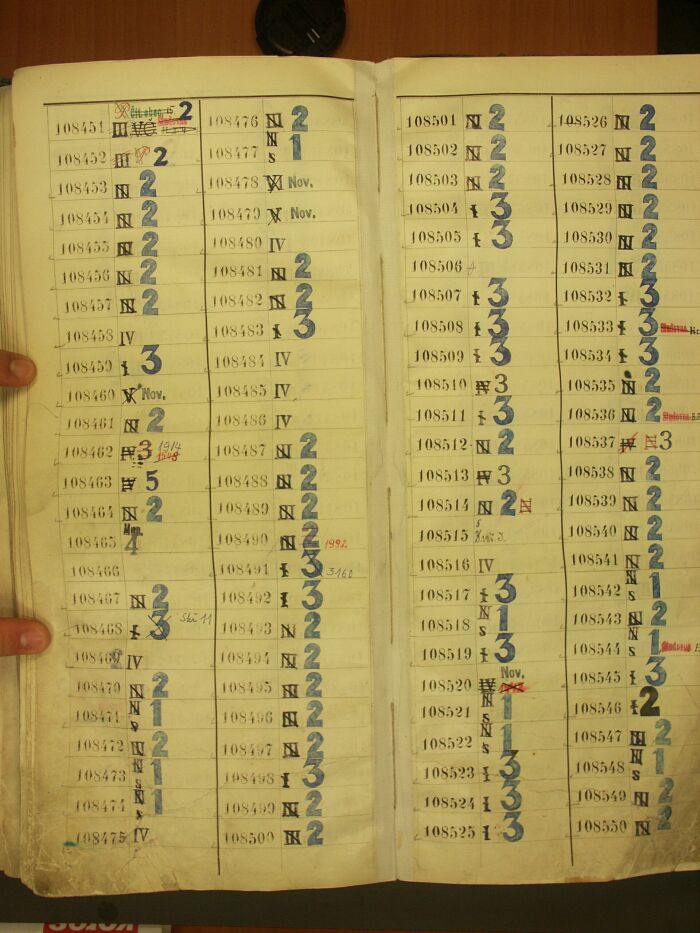 108451 III 2
108452 III 2
108453 IV 2
108454 IV 2
108455 IV 2
108456 IV 2
108457 IV 2
108458 IV
108459 I 3
108460 V Nov.
108461 IV 2
108462 IV 3 1914
108463 IV 5
108464 IV 2
108465 4
108466
108467 IV 2
108468 I 3
108469 IV
108470 IV 2
108471 N s 1
108472 IV 2
108473 N s 1
108474 N s 1
108475 IV
108476 IV 2
108477 N s 1
108478 Nov.
108479 V Nov.
108480 IV
108481 IV 2
108482 IV 2
108483 I 3
108484 IV
108485 IV
108486 IV
108487 IV 2
108488 IV 2
108489 IV 2
108490 IV 2 1992
108491 I 3 3160
108492 I 3
108493 IV 2
108494 IV 2
108495 IV 2
108496 IV 2
108497 IV 2
108498 I 3
108499 IV 2
108500 IV 2
108501 IV 2
108502 IV 2
108503 IV 2
108504 I 3
108505 I 3
108506
108507 I 3
108508 I 3
108509 I 3
108510 IV 3
108511 I 3
108512 IV 2
108513 IV 3
108514 IV 2
108515
108516 IV
108517 I 3
108518 N s 1
108519 I 3
108520 IV Nov.
108521 N s 1
108522 N s 1
108523 I 3
108524 I 3
108525 I 3
108526 IV 2
108527 IV 2
108528 IV 2
108529 IV 2
108530 IV 2
108531 IV 2
108532 I 3
108533 I 3
108534 I 3
108535 IV 2
108536 IV 2
108537 IV 3
108538 IV 2
108539 IV 2
108540 IV 2
108541 IV 2
108542 N s 1
108543 IV 2
108544 N s 1
108545 I 3
108546 I 2
108547 IV 2
108548 N s 1
108549 IV 2
108550 IV 2